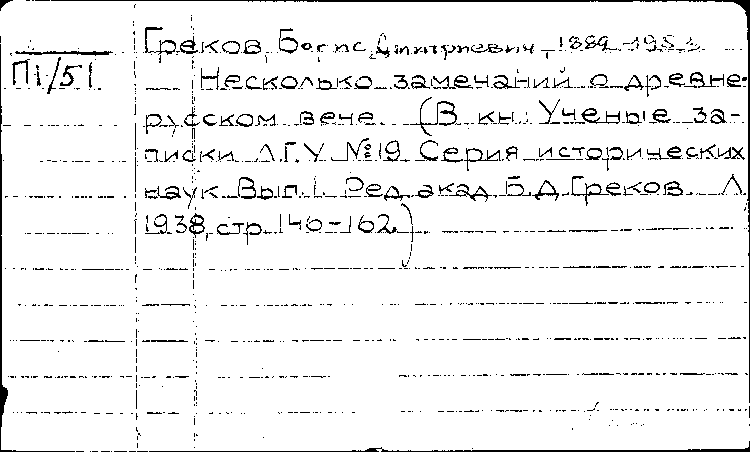 Греков, Борис Дмитриевич, 1882-1953
П1/51
Несколько замечаний о древне-
русском вече. (В кн: Ученые за-
писки Л.Г.У №19 Серия исторических
наук Вып.1. Ред. акад Б.Д.Греков. Л
1938, стр 146-162)